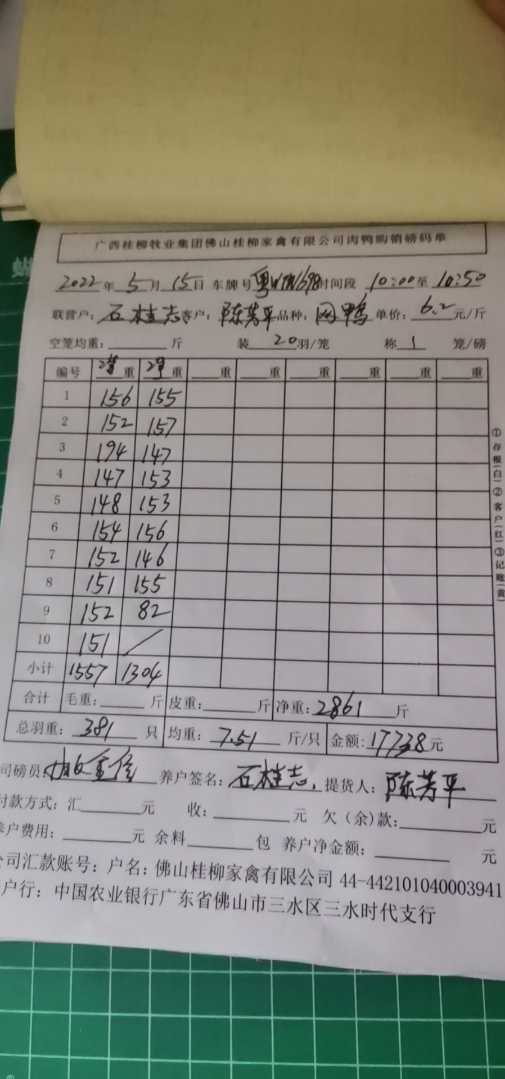 广西桂柳牧业集团佛山桂柳家禽有限公司肉鸭购销磅码单
2022年 5月 15日 车牌号 时间段 10:00至 10:50
联营户: 石桂志 客户: 陈芳平 品种: 鸭 单价: 6.2元/斤
空笼均重: 斤 装 20羽/笼 称 1 笼/磅
编号 重 重 重 重 重 重 重
1 156 155
2 152 157
3 194 147
4 147 153
5 148 153
6 154 156
7 152 146
8 151 155
9 152 82
10 151 /
小计 1557 1304
合计 毛重: 斤 皮重: 斤 净重: 2861 斤
总羽重: 381 只 均重: 7.51 斤/只 金额: 17738元
司磅员: 养户签名: 石桂志. 提货人: 陈芳平
付款方式: 汇 元 收: 元 欠(余)款: 元
养户费用: 元 余料 包 养户净金额: 元
公司汇款账号: 户名: 佛山桂柳家禽有限公司 44-442101040003941
户行: 中国农业银行广东省佛山市三水区三水时代支行
①存根(白)②客户(红)③记账(黄)